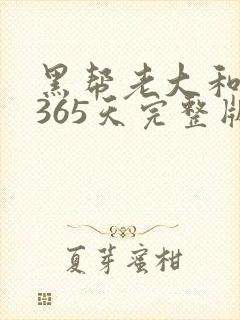 黑帮老大和
365天完整版
夏芽蜜柑